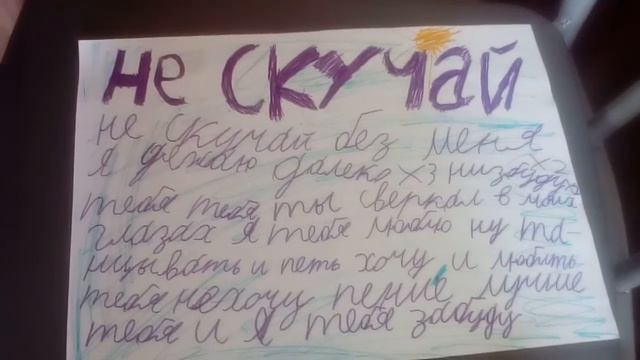 не СКУЧАЙ
не скучай без меня
я уежаю далеко х3 низабуду х2
тебя тебя ты сверкал в моих
глазах я тебя люблю ну та-
нцывать и петь хочу и любить
тебя нехочу пение лучше
тебя и я тебя забуду